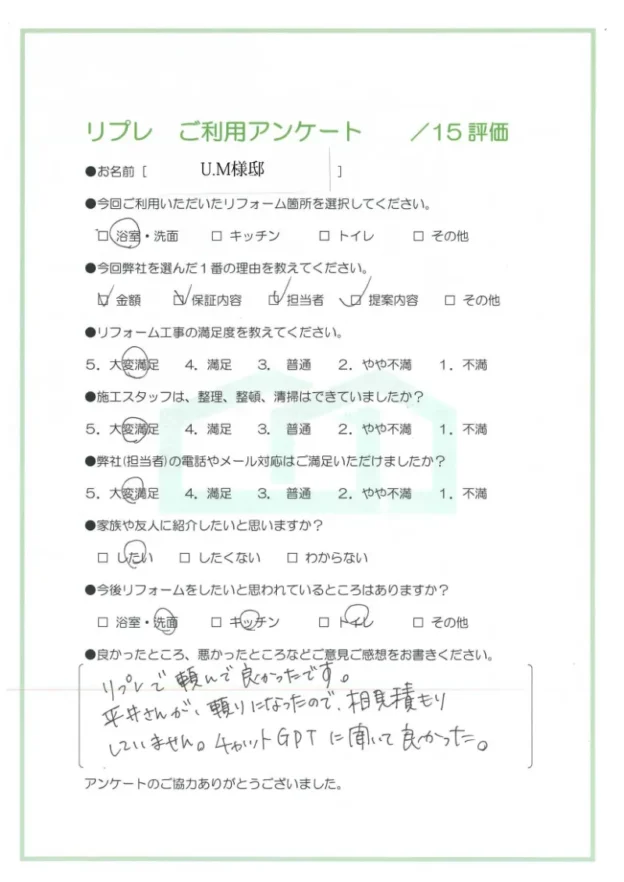 リプレ ご利用アンケート ／15評価
●お名前［ U.M様邸 ］
●今回ご利用いただいたリフォーム箇所を選択してください。
□ 浴室・洗面 □ キッチン □ トイレ □ その他
●今回弊社を選んだ１番の理由を教えてください。
☑ 金額 ☑ 保証内容 ☑ 担当者 ☑ 提案内容 □ その他
●リフォーム工事の満足度を教えてください。
5．大変満足 4．満足 3．普通 2．やや不満 1．不満
●施工スタッフは、整理、整頓、清掃はできていましたか？
5．大変満足 4．満足 3．普通 2．やや不満 1．不満
●弊社(担当者)の電話やメール対応はご満足いただけましたか？
5．大変満足 4．満足 3．普通 2．やや不満 1．不満
●家族や友人に紹介したいと思いますか？
□ したい □ したくない □ わからない
●今後リフォームをしたいと思われているところはありますか？
□ 浴室・洗面 □ キッチン □ トイレ □ その他
●良かったところ、悪かったところなどご意見ご感想をお書きください。
リプレで頼んで良かったです。
平井さんが、頼りになったので、相見積もり
していません。チャットGPTに聞いて良かった。
アンケートのご協力ありがとうございました。